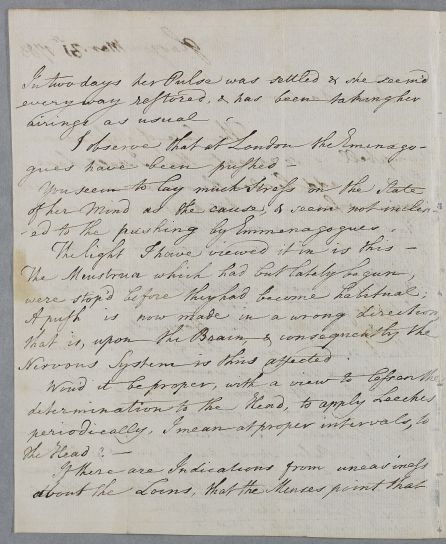 In two days her Pulse was settled & she seem'd
every way restored, & has been taking her
airings as usual.
I observe that at London the Emenago-
gues have been pushed –
You seem to lay much Stress on the State
of her Mind as the cause, & seem not inclin-
ed to the pushing by Emmenagogues.
The light I have viewed it in is this –
The Menstrua which had but lately begun,
were stop'd before they had become habitual;
A push is now made in a wrong direction,
that is, upon the Brain, & consequently the
Nervous System is thus affected.
Wou'd it be proper, with a view to lessen the
determination to the Head, to apply Leeches
periodically, I mean at proper intervals, to
the Head? –
If there are Indications from uneasiness
about the Loins, that the Menses point that